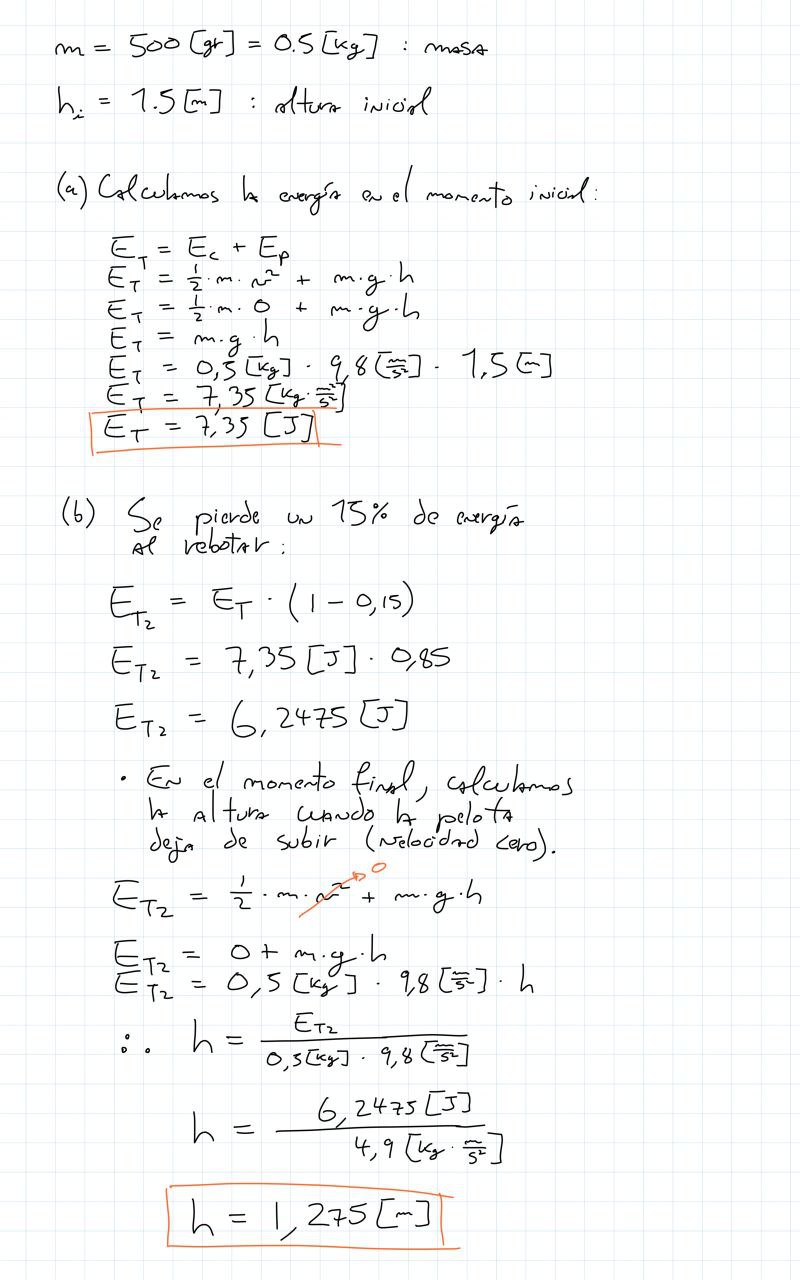 m = 500 [gr] = 0.5 [kg] : masa
hᵢ = 1.5 [m] : altura inicial
(a) Calculamos la energía en el momento inicial:
E_T = E_c + E_p
E_T = 1/2 · m · v² + m·g·h
E_T = 1/2 · m · 0 + m·g·h
E_T = m·g·h
E_T = 0,5 [kg] · 9,8 [m/s²] · 1,5 [m]
E_T = 7,35 [kg · m²/s²]
E_T = 7,35 [J]
(b) Se pierde un 15% de energía
al rebotar:
E_T2 = E_T · (1 - 0,15)
E_T2 = 7,35 [J] · 0,85
E_T2 = 6,2475 [J]
· En el momento final, calculamos
la altura cuando la pelota
deja de subir (velocidad cero).
E_T2 = 1/2 · m · v² → 0 + m·g·h
E_T2 = 0 + m·g·h
E_T2 = 0,5 [kg] · 9,8 [m/s²] · h
∴ h = E_T2 / 0,5 [kg] · 9,8 [m/s²]
h = 6,2475 [J] / 4,9 [kg · m/s²]
h = 1,275 [m]